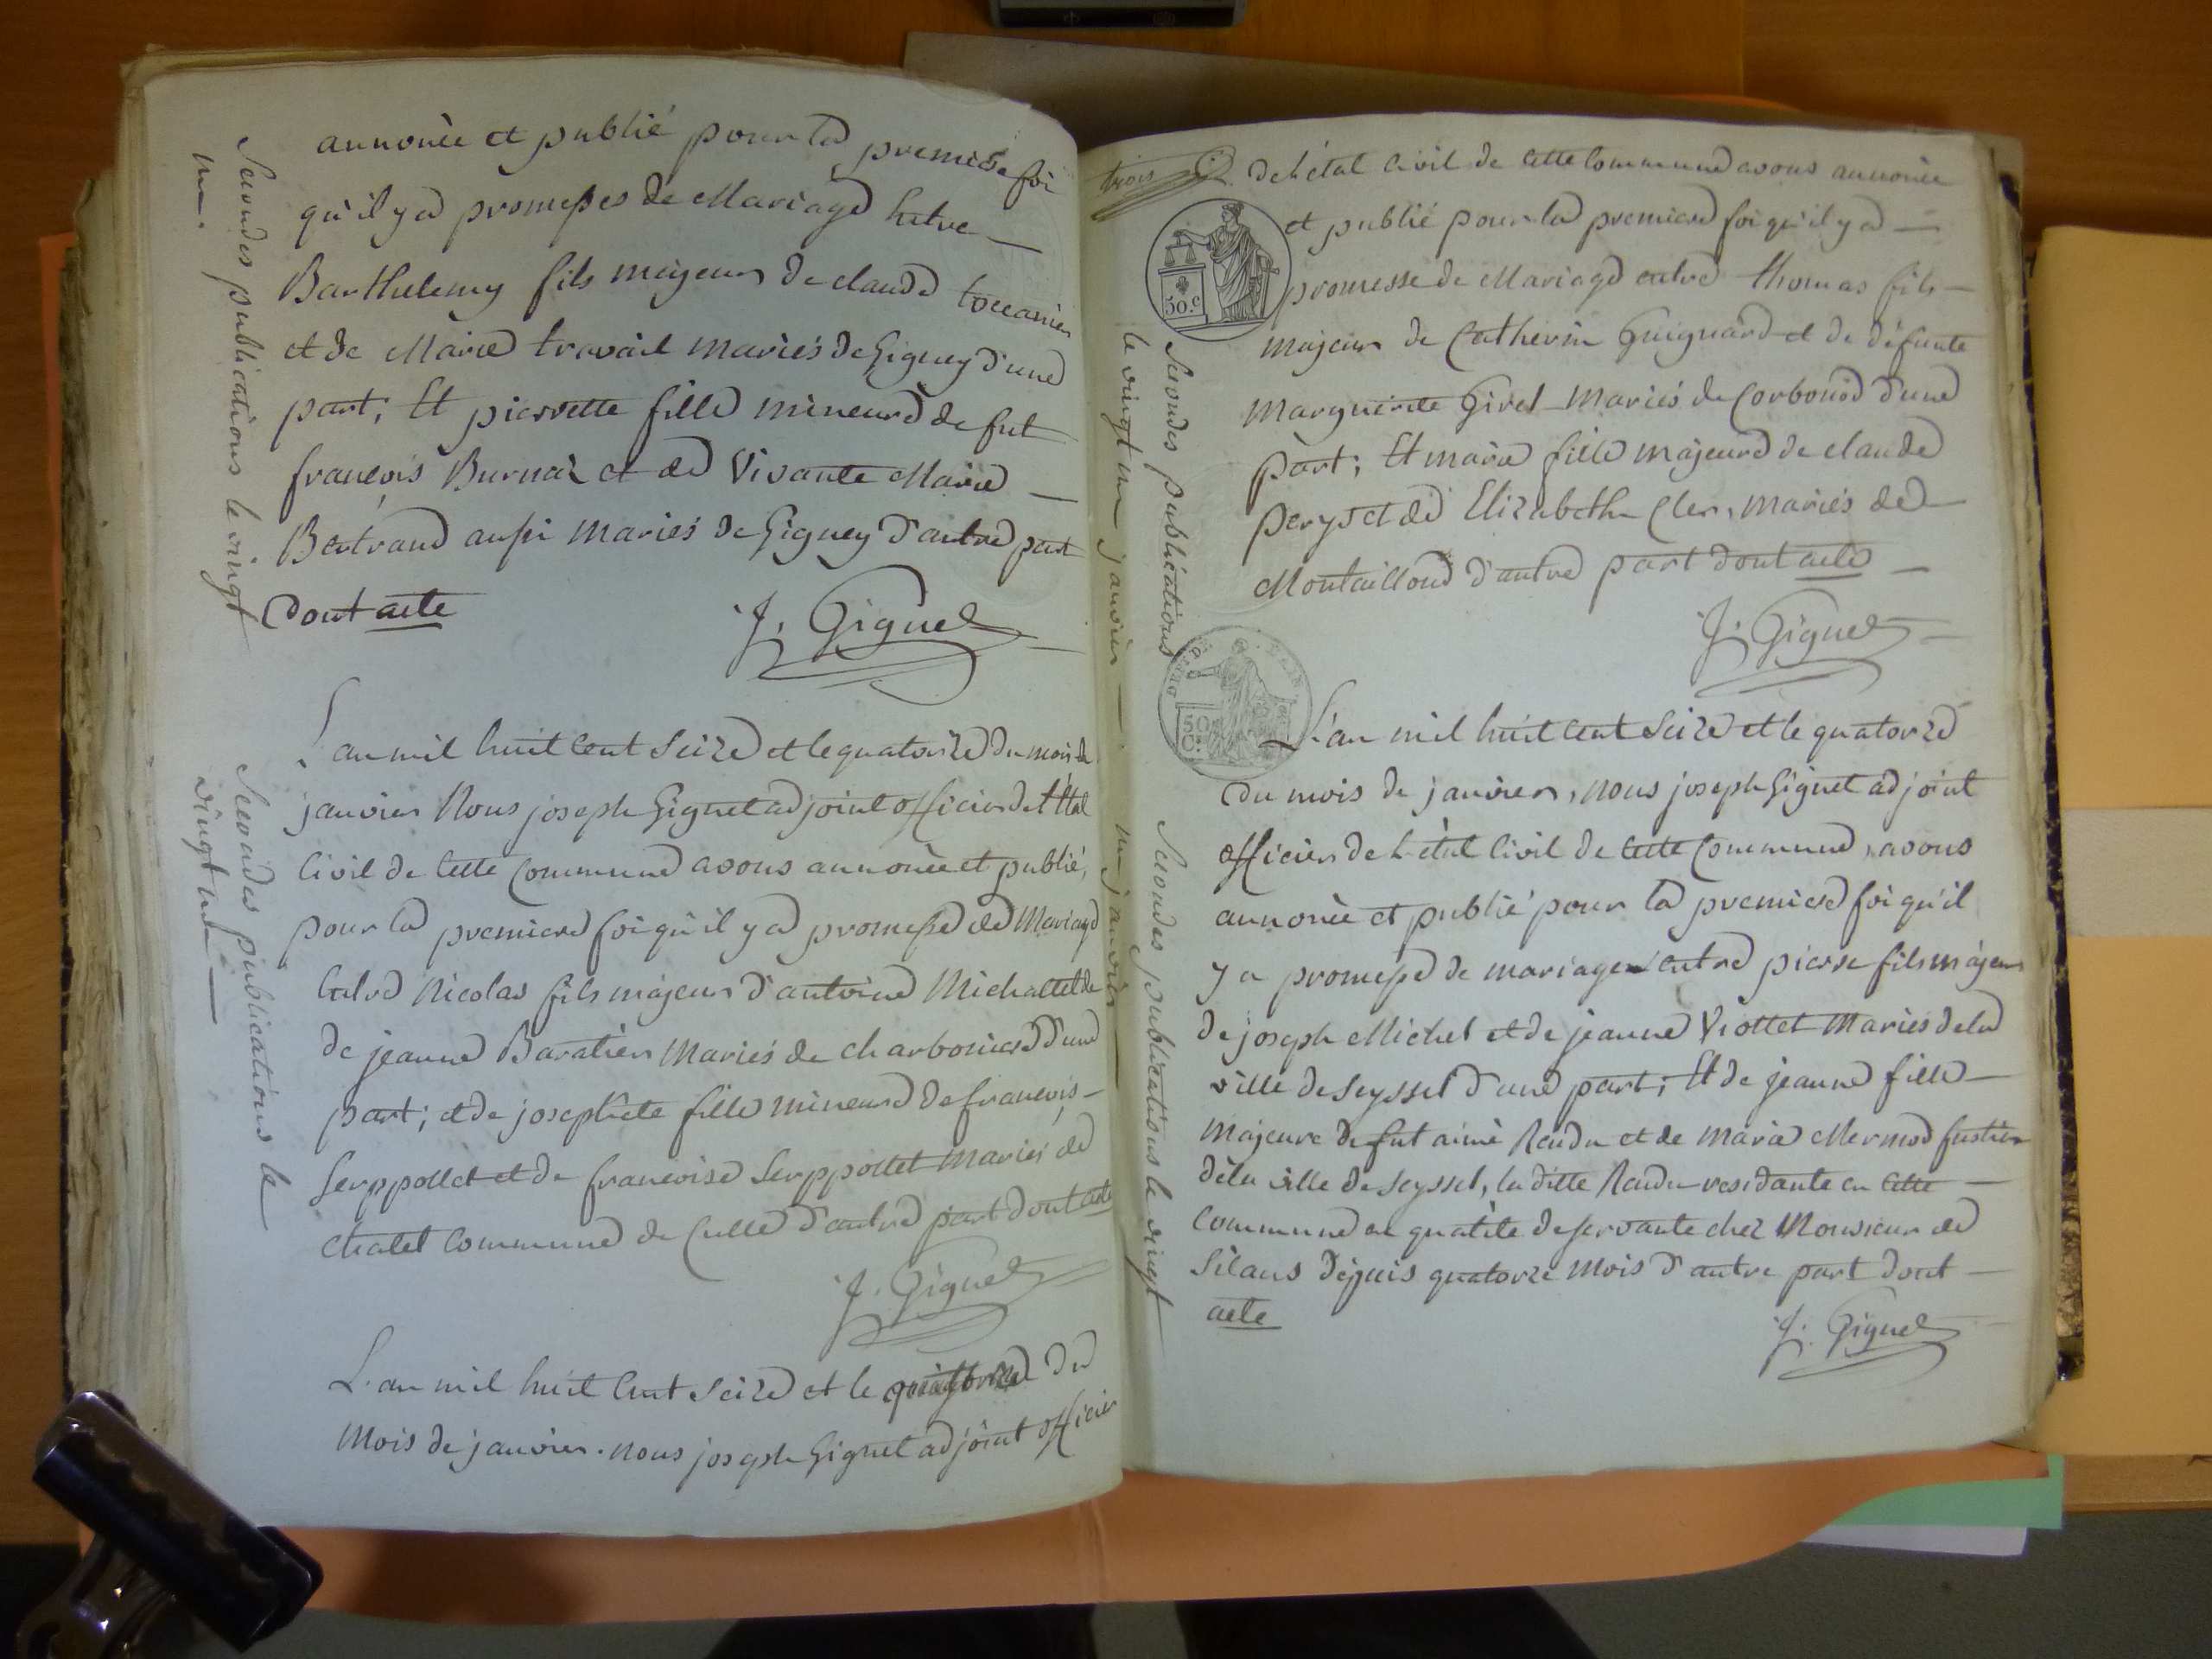 annoncé et publié pour la premiere foi
qu'il y a promesses de Mariage Entre
Barthelemy fils majeur de claude toccanier
et de Marie travail mariés de Gigney d'une
part; Et pierrette fille mineure de fut
françois Burnaz et de Vivante Marie
Bertrand aussi mariés de Gigney d'autre part
Dont acte
J. Gignet
Secondes publications le vingt
un.
L'an mil huit cent Seize et le quatorze du mois de
janvier Nous joseph Gignet adjoint officier de l'Etat
Civil de Cette Commune avons annoncé et publié,
pour la premiere foi qu'il y a promesse de Mariage
Entre Nicolas fils majeur d'antoine Michallet de
de jeanne Baratier Mariés de charboniere d'une
part; et de josephete fille mineure de françois
Serppollet et de francoise Serppollet Mariés de
Chatel Commune de Culle d'autre part dont acte
J. Gignet
Secondes publications le
vingt un
L'an mil huit Cent Seize et le quatorze du
Mois de janvier. nous joseph Gignet adjoint officier
trois
de l'état Civil de Cette Commune avons annoncé
et publié pour la premiere foi qu'il y a
promesse de Mariage entre thomas fils
majeur de Catherin Guignard et de défunte
Marguerite Girel Mariés de Corbonod d'une
part; Et marie fille majeure de claude
perys et de Elizabeth Cler, mariés de
Montailloud d'autre part dont acte
J. Gignet
50.c
Secondes publications
le vingt un janvier
50 C.
L'an mil huit Cent Seize et le quatorze
du mois de janvier, nous joseph Gignet adjoint
officier de l'état Civil de Cette Commune, avons
annoncé et publié pour la premiere foi qu'il
y a promesse de mariage entre pierre fils majeur
de joseph Michel et de jeanne Viollet Mariés de la
ville de Seyssel d'une part; Et de jeanne fille
majeure de fut aimé Rendu et de Marie Mermod
de la ville de Seyssel, la ditte Rendu residante en Cette
Commune en qualité de servante chez Monsieur de
Silans depuis quatorze Mois d'autre part dont
acte
J. Gignet
Secondes publications le vingt
un janvier